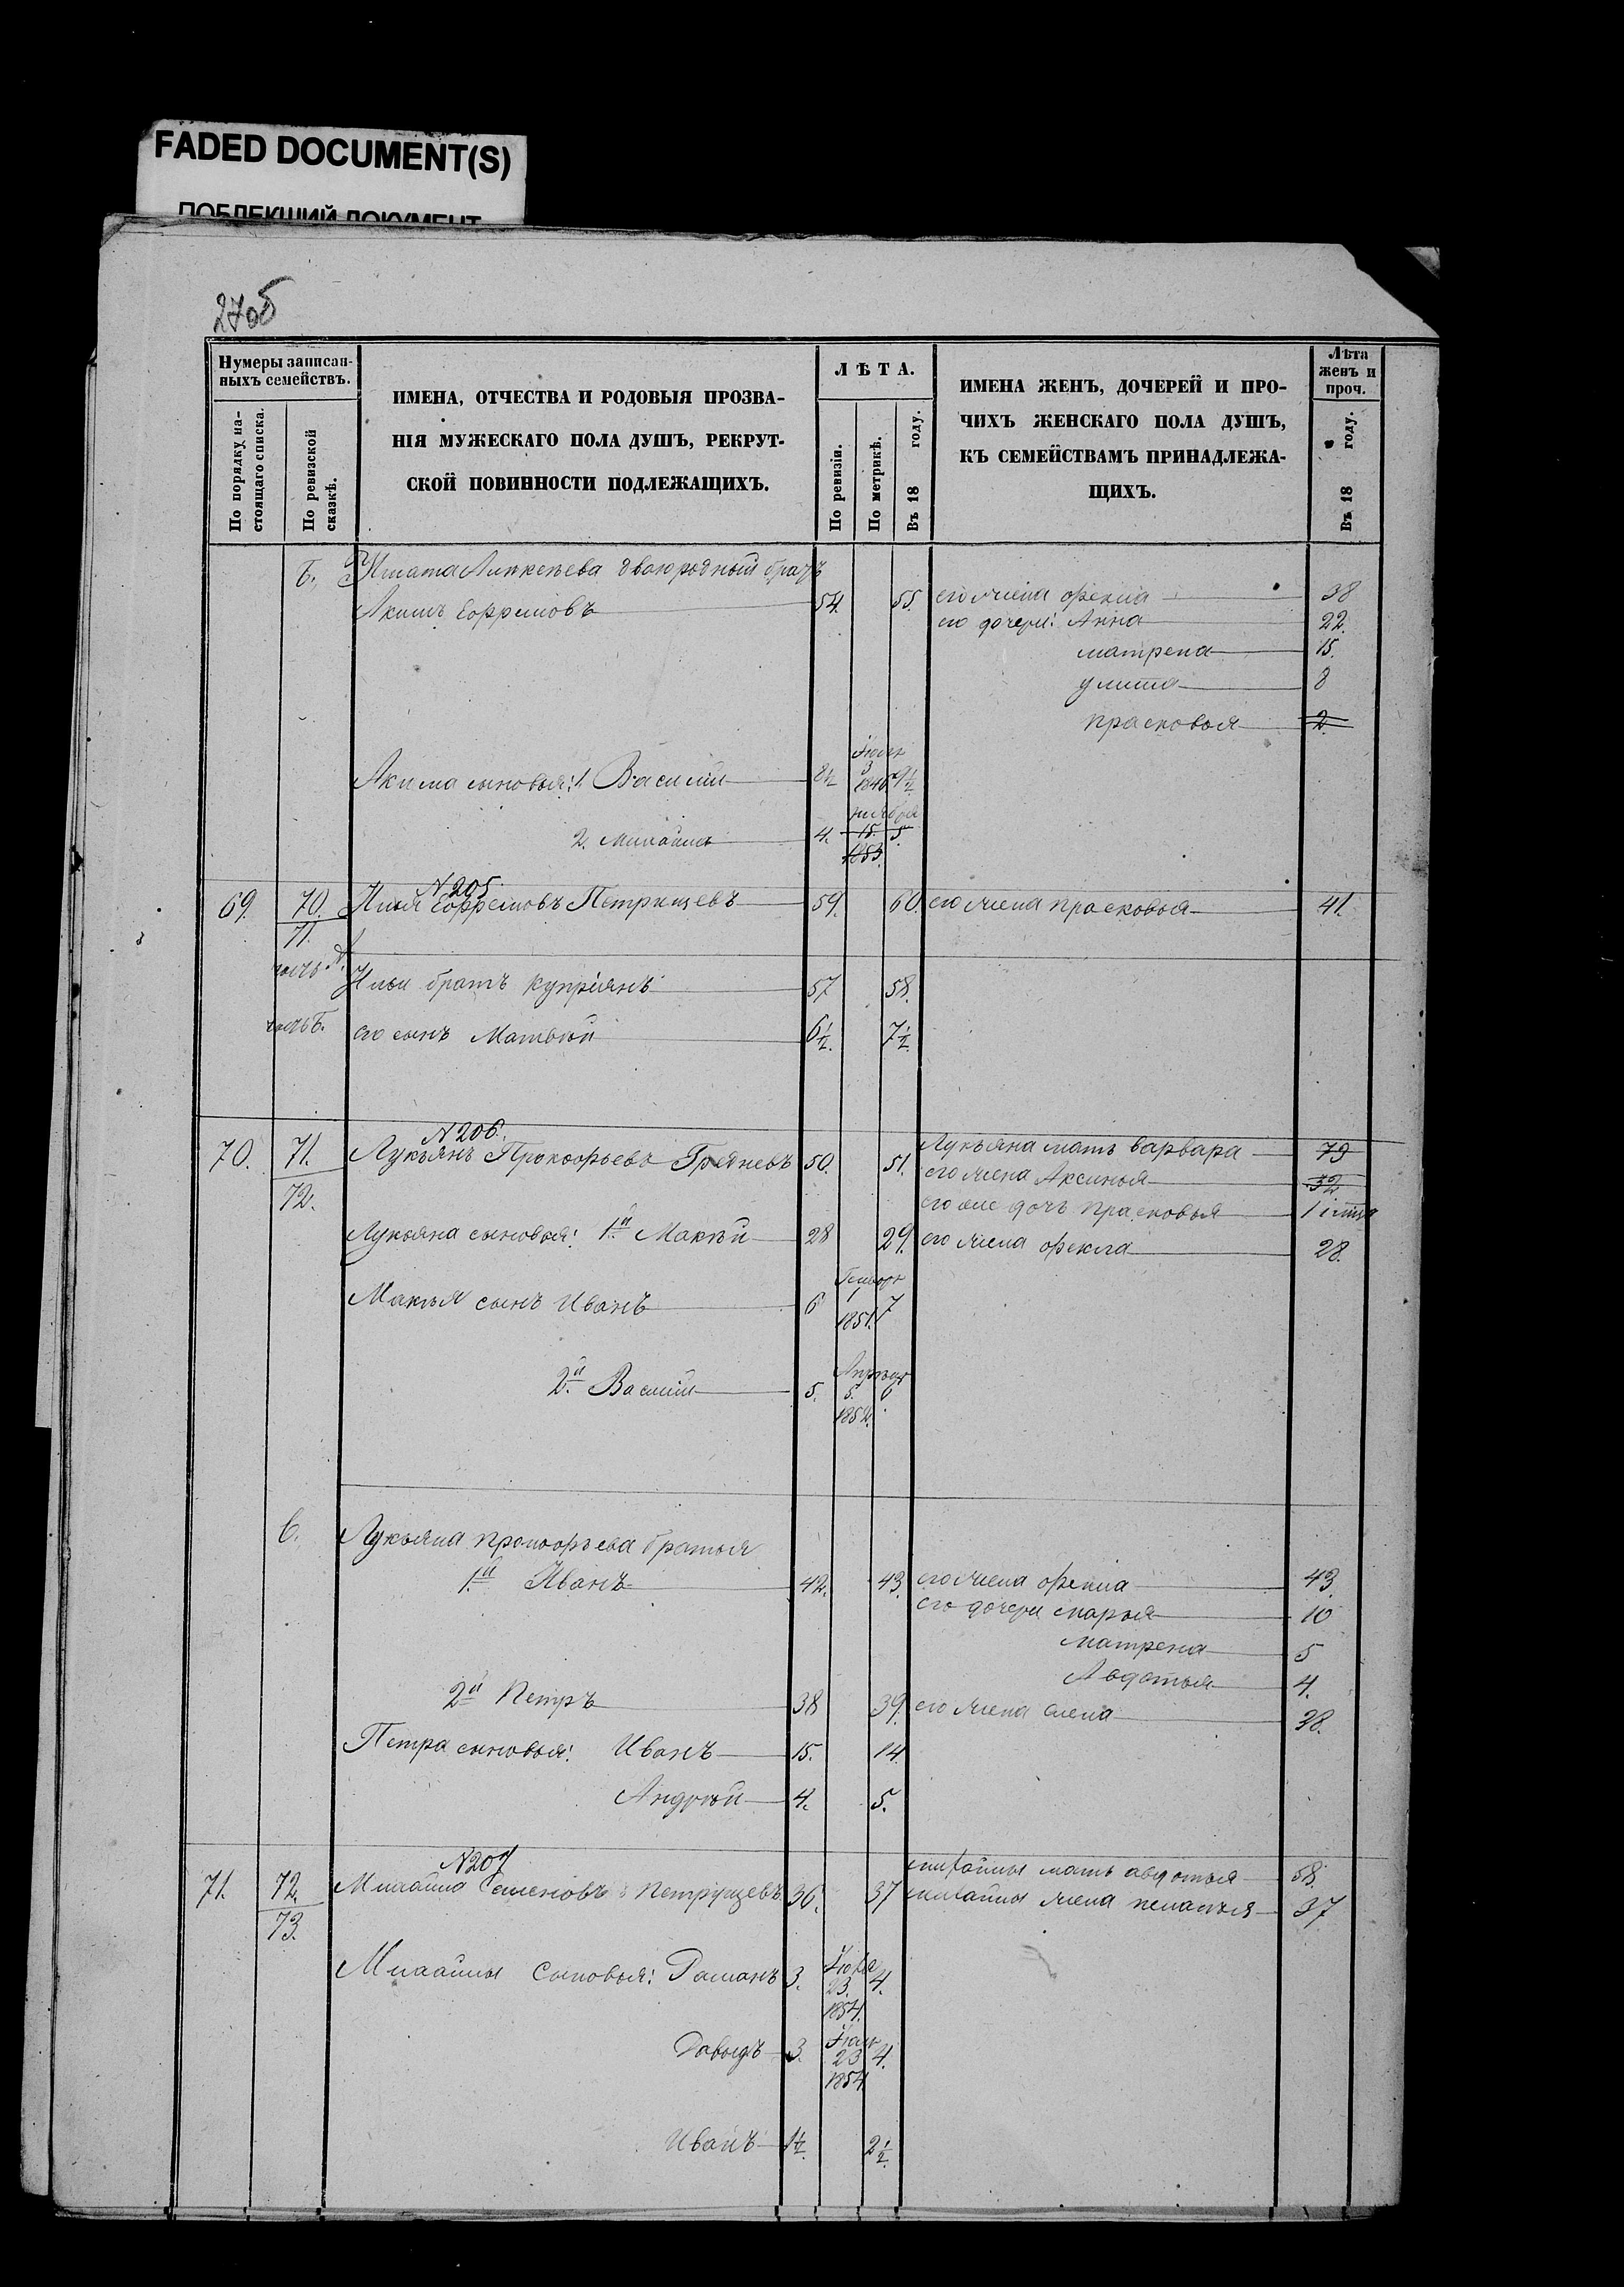 FADED DOCUMENT(S)
ПОБЛЕКШИЙ ДОКУМЕНТ
27об
Нумеры записан-
ныхъ семействъ.
По порядку на-
стоящаго списка.
По ревизской
сказкѣ.
ИМЕНА, ОТЧЕСТВА И РОДОВЫЯ ПРОЗВА-
НІЯ МУЖЕСКАГО ПОЛА ДУШЪ, РЕКРУТ-
СКОЙ ПОВИННОСТИ ПОДЛЕЖАЩИХЪ.
ЛѢТА.
По ревизіи.
По метрикѣ.
Въ 18 году.
ИМЕНА ЖЕНЪ, ДОЧЕРЕЙ И ПРО-
ЧИХЪ ЖЕНСКАГО ПОЛА ДУШЪ,
КЪ СЕМЕЙСТВАМЪ ПРИНАДЛЕЖА-
ЩИХЪ.
Лѣта
женъ и
проч.
Въ 18 году.
Б. двоюродный братъ
Акимъ Ефремовъ 54. 55. его жена Фекла 38
его дочери: Анна 22.
матрена 15.
улита 8
прасковья 2.
Акима сыновья: 1. Василій 8½ 3 1846 9½
2. Михайла 4. ноября 15. 1853. 5.
N 205.
69. 70. Илья Ефремовъ Петрищевъ 59. 60. его жена прасковья 41.
71.
часть А. Ильи братъ Купріянъ 57 58.
часть Б. его сынъ Матвѣй 6½. 7½.
N 206.
70. 71. Лукьянъ Прокофьевъ Гредневъ 50. 51. Лукьяна мать варвара 79
72. его жена Аксинья 32
его же дочь прасковья
Лукьяна сыновья: 1й Макѣй 28 29. его жена фекла 28.
Макѣя сынъ Иванъ 6 1 1851. 7
2й Василій 5. Апрѣля 5. 1852. 6
Лукьяна прокофьева братья
1й Иванъ 42. 43. его жена фекла 43.
его дочери марья 10
матрена 5
Авдотья 4.
2й Петръ 38 39. его жена елена 38.
Петра сыновья: Иванъ 15. 14
Андрѣй 4. 5.
N 207
71. 72. Михайла Семеновъ Петрищевъ 36. 37 михайлы мать авдотья 58.
73. михайлы жена пелагѣя 37
Михайлы сыновья: Романъ 3. 23. 1854. 4.
Давыдъ 3. 23 1854 4.
Иванъ 1½. 2½.